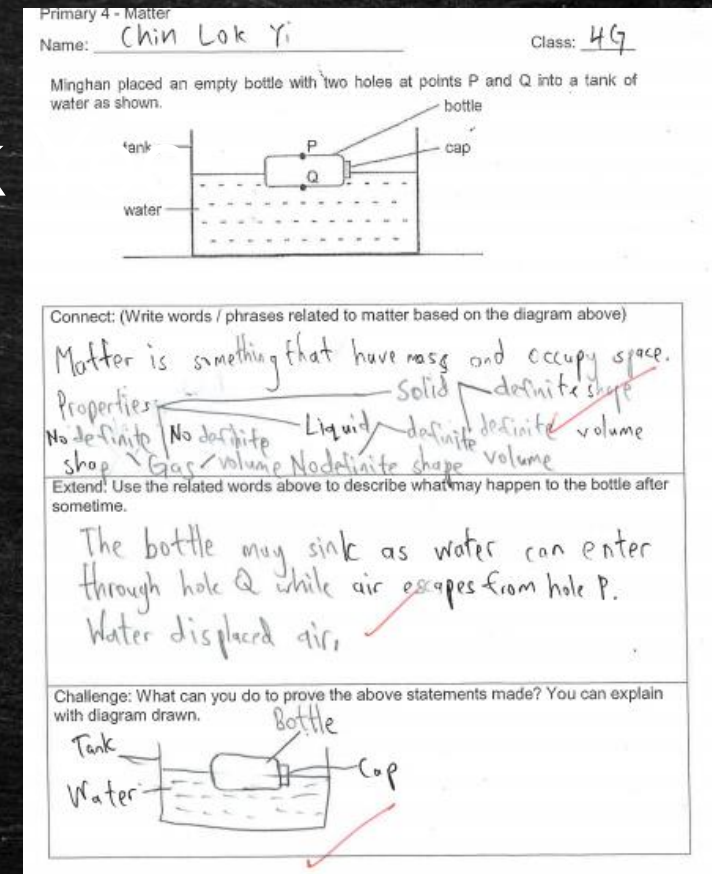 Primary 4 - Matter
Name: Chin Lok Yi Class: 4G
Minghan placed an empty bottle with two holes at points P and Q into a tank of
water as shown.
bottle
tank
P
cap
Q
water
Connect: (Write words / phrases related to matter based on the diagram above)
Matter is something that have mass and occupy space.
Properties: Solid definite shape
No definite No definite Liquid definite definite volume
shap Gas volume No definite shape volume
Extend: Use the related words above to describe what may happen to the bottle after
sometime.
The bottle may sink as water can enter
through hole Q while air escapes from hole P.
Water displaced air.
Challenge: What can you do to prove the above statements made? You can explain
with diagram drawn.
Bottle
Tank
Cap
Water